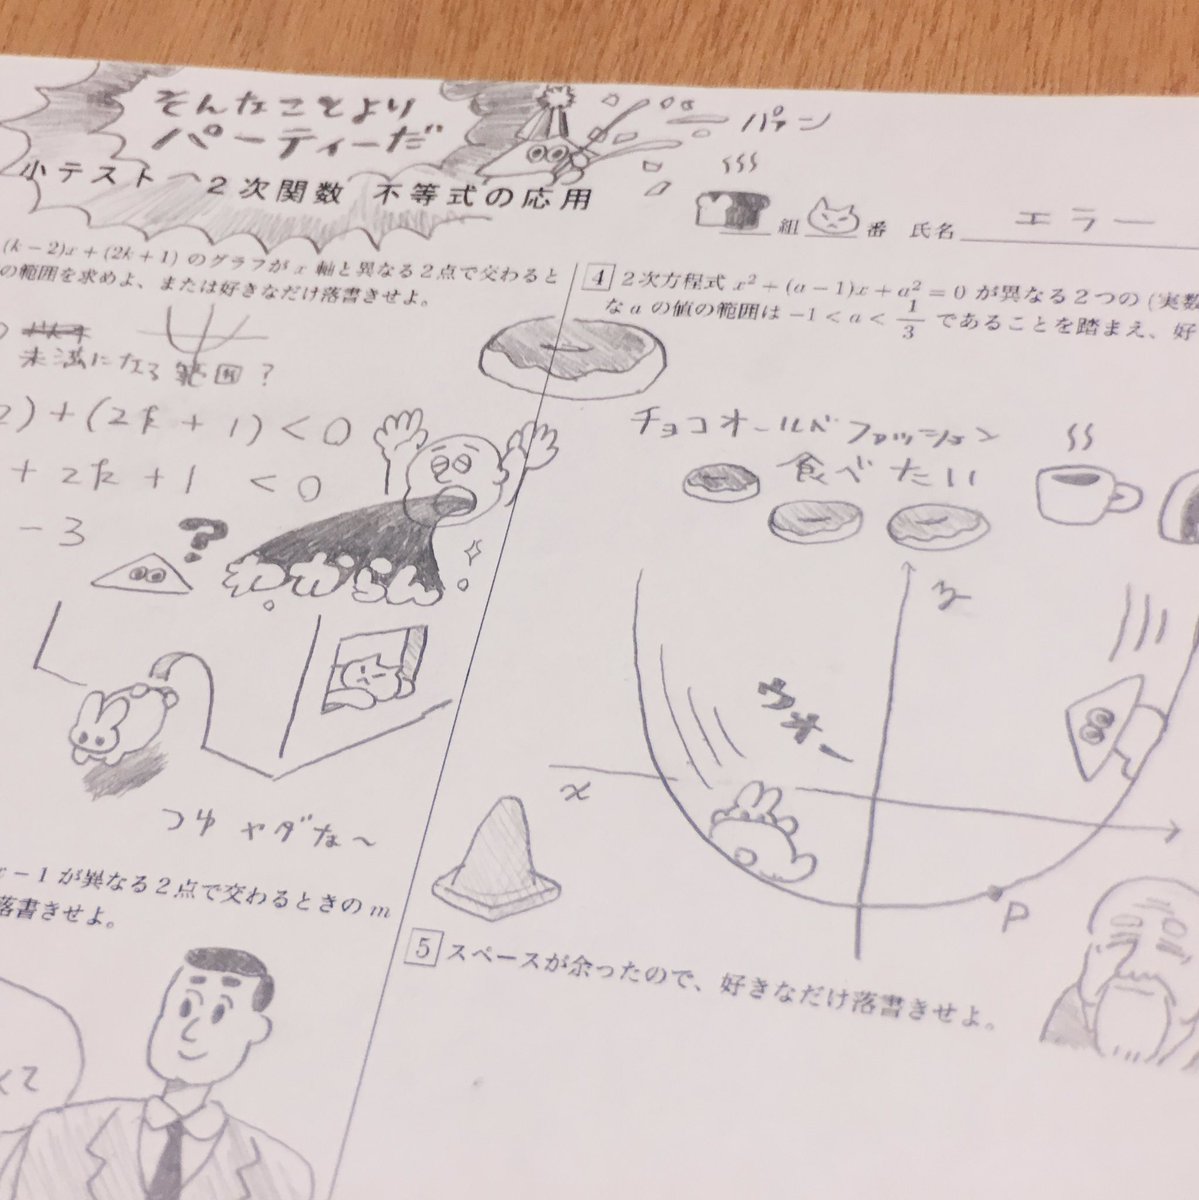 そんなことより
パーティーだ
パァン
小テスト 2次関数 不等式の応用
組 番 氏名 エラー
(k−2)x+(2k+1) のグラフが x 軸と異なる2点で交わると
の範囲を求めよ、または好きなだけ落書きせよ。
未満になる範囲?
2)+(2k+1)<0
+2k+1 <0
−3
?
つゆ ヤダな〜
x−1 が異なる2点で交わるときの m
落書きせよ。
くて
4 2次方程式 x²+(a−1)x+a²=0 が異なる2つの (実数
な a の値の範囲は −1<a<1/3 であることを踏まえ、好
チョコオールドファッション
食べたい
y
ウオー
x
P
5 スペースが余ったので、好きなだけ落書きせよ。